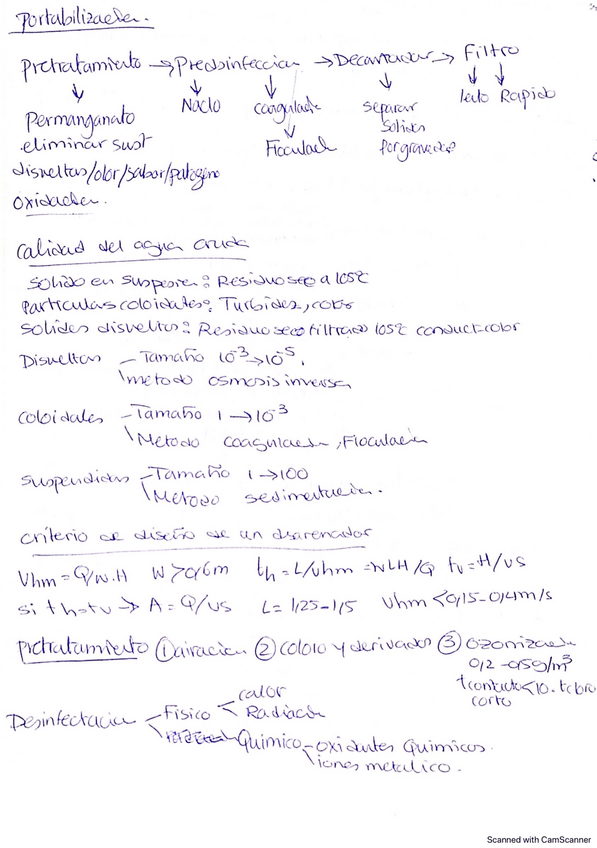 Portabilización.
Pretratamiento → Predsinfeccion → Decantador → Filtro
Permanganato NaClO coagulación separar lento Rapido
eliminar sust Floculació Solidos
disueltas/olor/sabor/patogeno por gravedad
oxidación.
Calidad del agua cruda
Solido en suspension: Residuo seco a 105°C
Particulas coloidales: Turbidez, color
Solides disueltos: Residuo seco filtrado 105°C conduct-color
Disueltas - Tamaño 10⁻³→10⁻⁵.
\metodo osmosis inversa
coloidales - Tamaño 1→10⁻³
\Metodo coagulación, Floculación
Suspendidas - Tamaño 1→100
\Metodo sedimentación.
criterio de diseño de un desarenador
Vhm = Q/W.H W>0,6m th = L/Vhm = WLH/Q tv = H/vs
si th=tv → A = Q/vs L = 1,25-1,5 Vhm <0,15-0,4m/s
Pretratamiento ① airacion ② cloro y derivados ③ Ozonización
0,2-0,5g/m³
tcontacto<10.
corto
Desinfectacion - Fisico < calor
Radiación
Químico - oxidantes Químicos.
\iones metalico.
Scanned with CamScanner